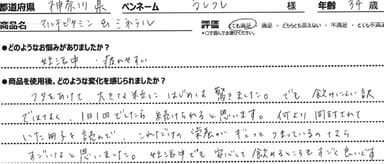 都道府県 神奈川県 ペンネーム うしろし 様 年齢 34歳
商品名 マルチビタミン&ミネラル 評価 とても満足・満足・どちらとも言えない・不満足・とても不満足
●どのようなお悩みがありましたか?
妊活中・疲れやすい
●商品を使用後、どのような変化を感じられましたか?
フタをあけて 大きな粒に はじめは 驚きました。でも 飲めにくい訳
ではなく、1日1回でしたら 続けられると思います。何より 同封されて
いた冊子を読んで、これだけの 栄養が ぎゅっと つまっているってなら
すごいなと思いました。妊活中でも 安心して 飲めるところもすごく良いです